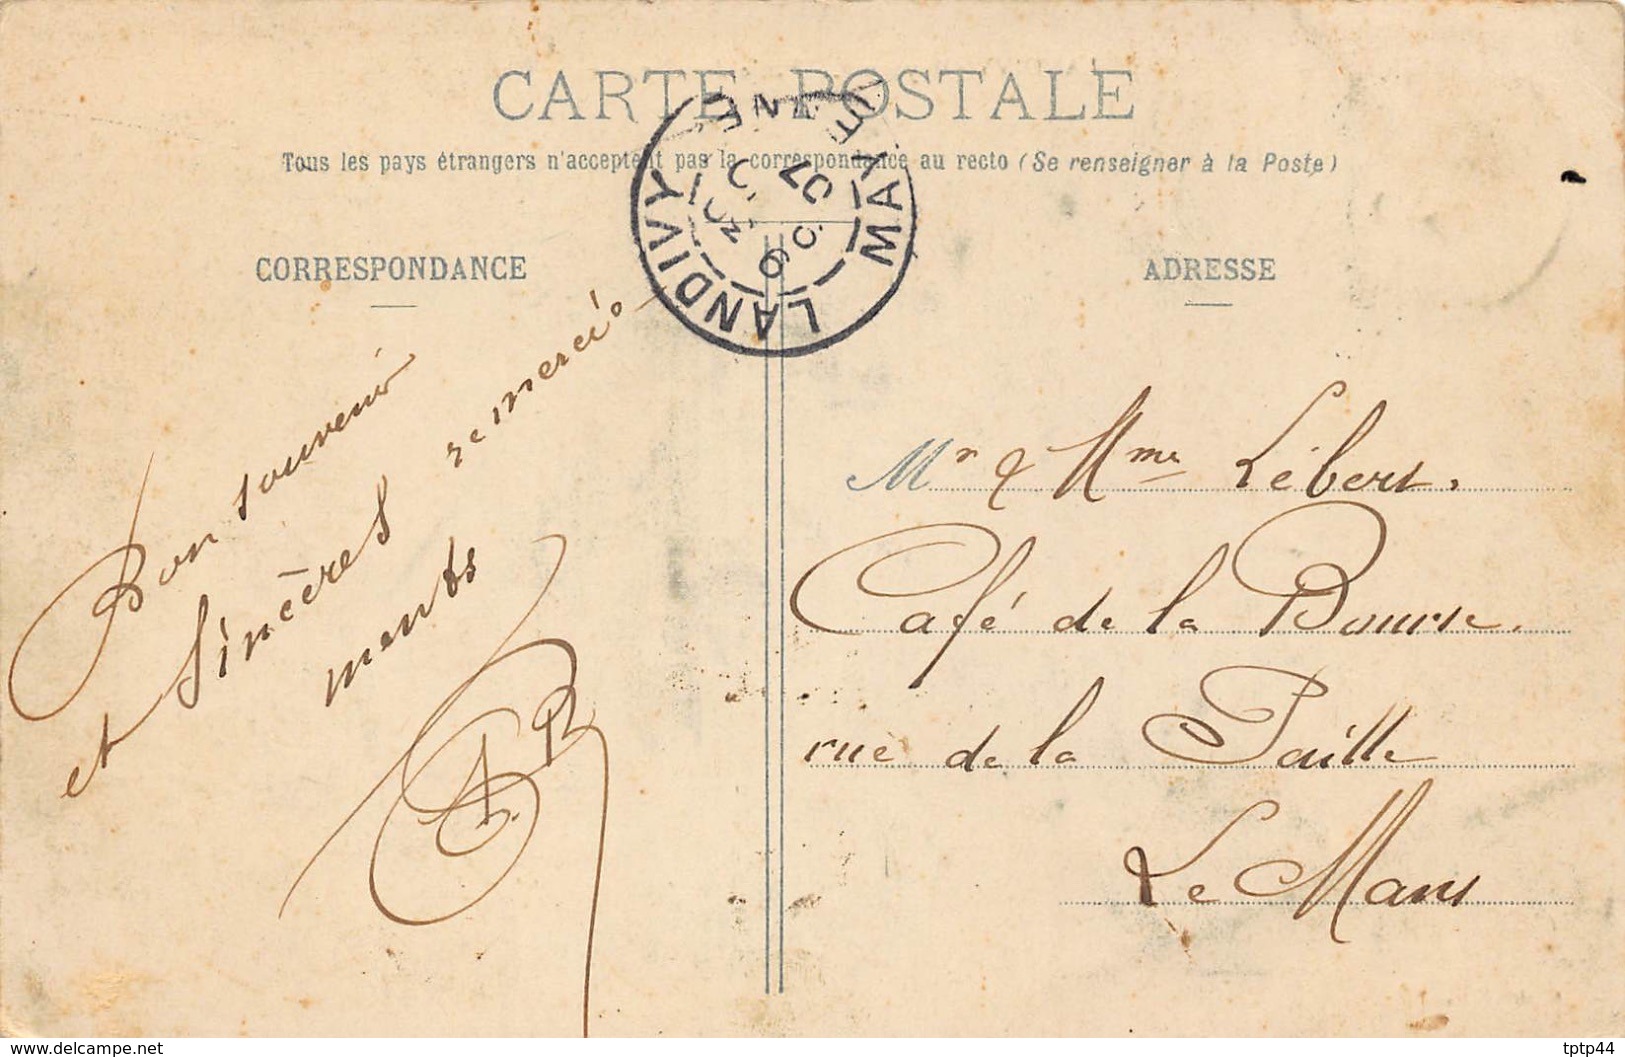 CARTE POSTALE
Tous les pays étrangers n'acceptent pas la correspondance au recto (Se renseigner à la Poste)
CORRESPONDANCE
Bon souvenir
et sincères remerci
ments
AB
LANDIVY
MAYENNE
6
07
ADRESSE
Mr & Mme Lébert.
Café de la Bourse.
rue de la Paille
Le Mans
www.delcampe.net
tptp44